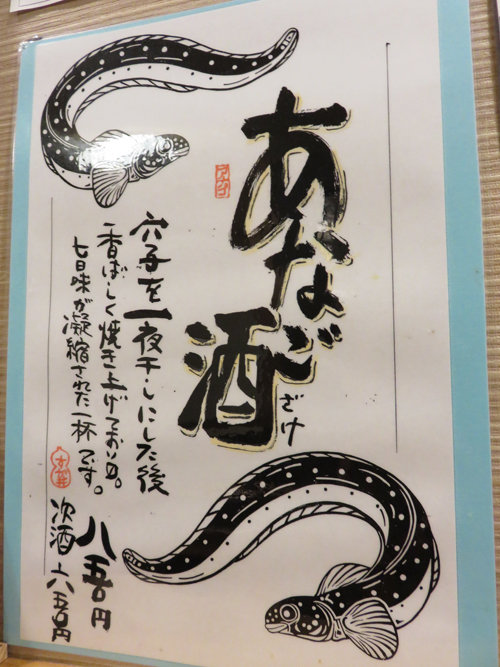 あなご酒
ざけ
穴子を一夜干しにした後
香ばしく焼き上げており〼。
旨味が凝縮された一杯です。
八五〇円
次酒 六五〇円